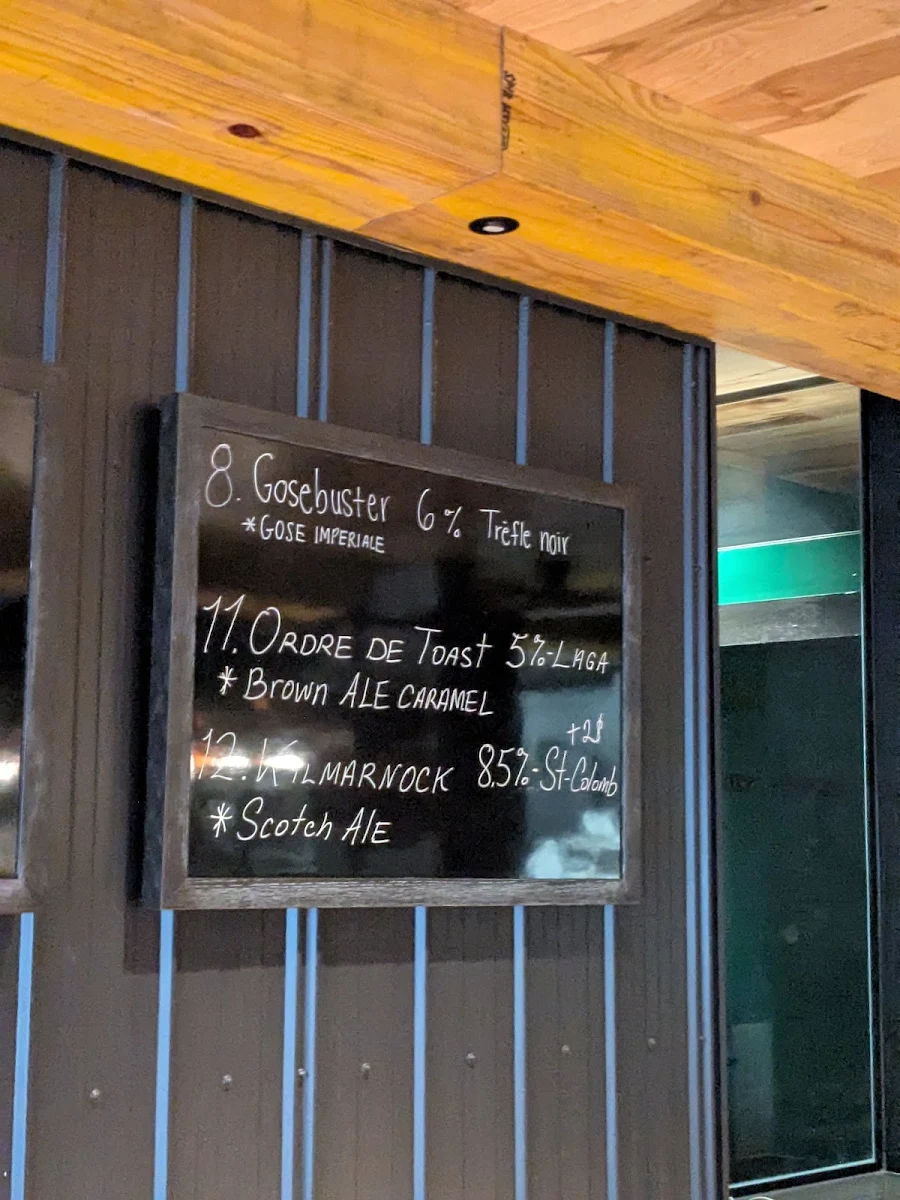 8. Gosebuster 6% Trèfle noir
*GOSE IMPERIALE
11. ORDRE DE TOAST 5%-LAGA
* Brown ALE CARAMEL
+2$
12. KILMARNOCK 8,5%-St-Colomb
*Scotch AlE